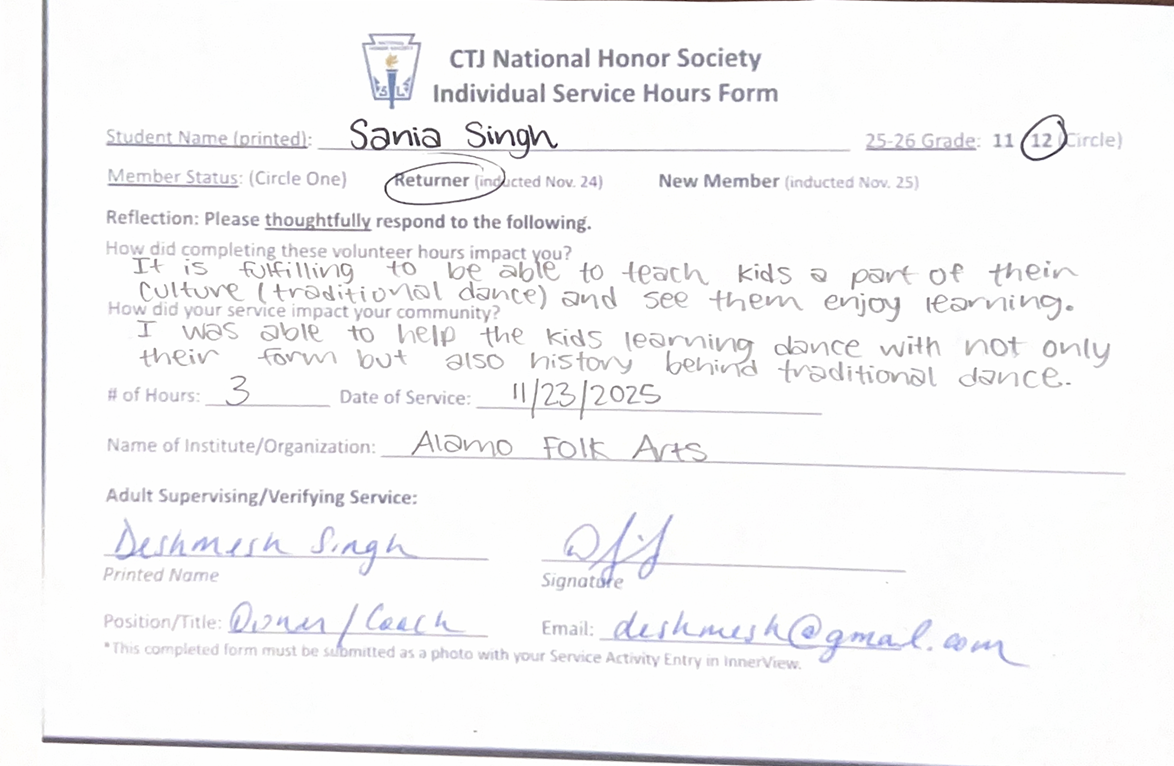 CTJ National Honor Society
Individual Service Hours Form
Student Name (printed): Sania Singh 25-26 Grade: 11 12 (Circle)
Member Status: (Circle One) Returner (inducted Nov. 24) New Member (inducted Nov. 25)
Reflection: Please thoughtfully respond to the following.
How did completing these volunteer hours impact you?
It is fulfilling to be able to teach kids a part of their
culture (traditional dance) and see them enjoy learning.
How did your service impact your community?
I was able to help the kids learning dance with not only
their form but also history behind traditional dance.
# of Hours: 3 Date of Service: 11/23/2025
Name of Institute/Organization: Alamo Folk Arts
Adult Supervising/Verifying Service:
Deshmesh Singh
Printed Name Signature
Position/Title: Owner/Coach Email: deshmesh@gmail.com
*This completed form must be submitted as a photo with your Service Activity Entry in InnerView.